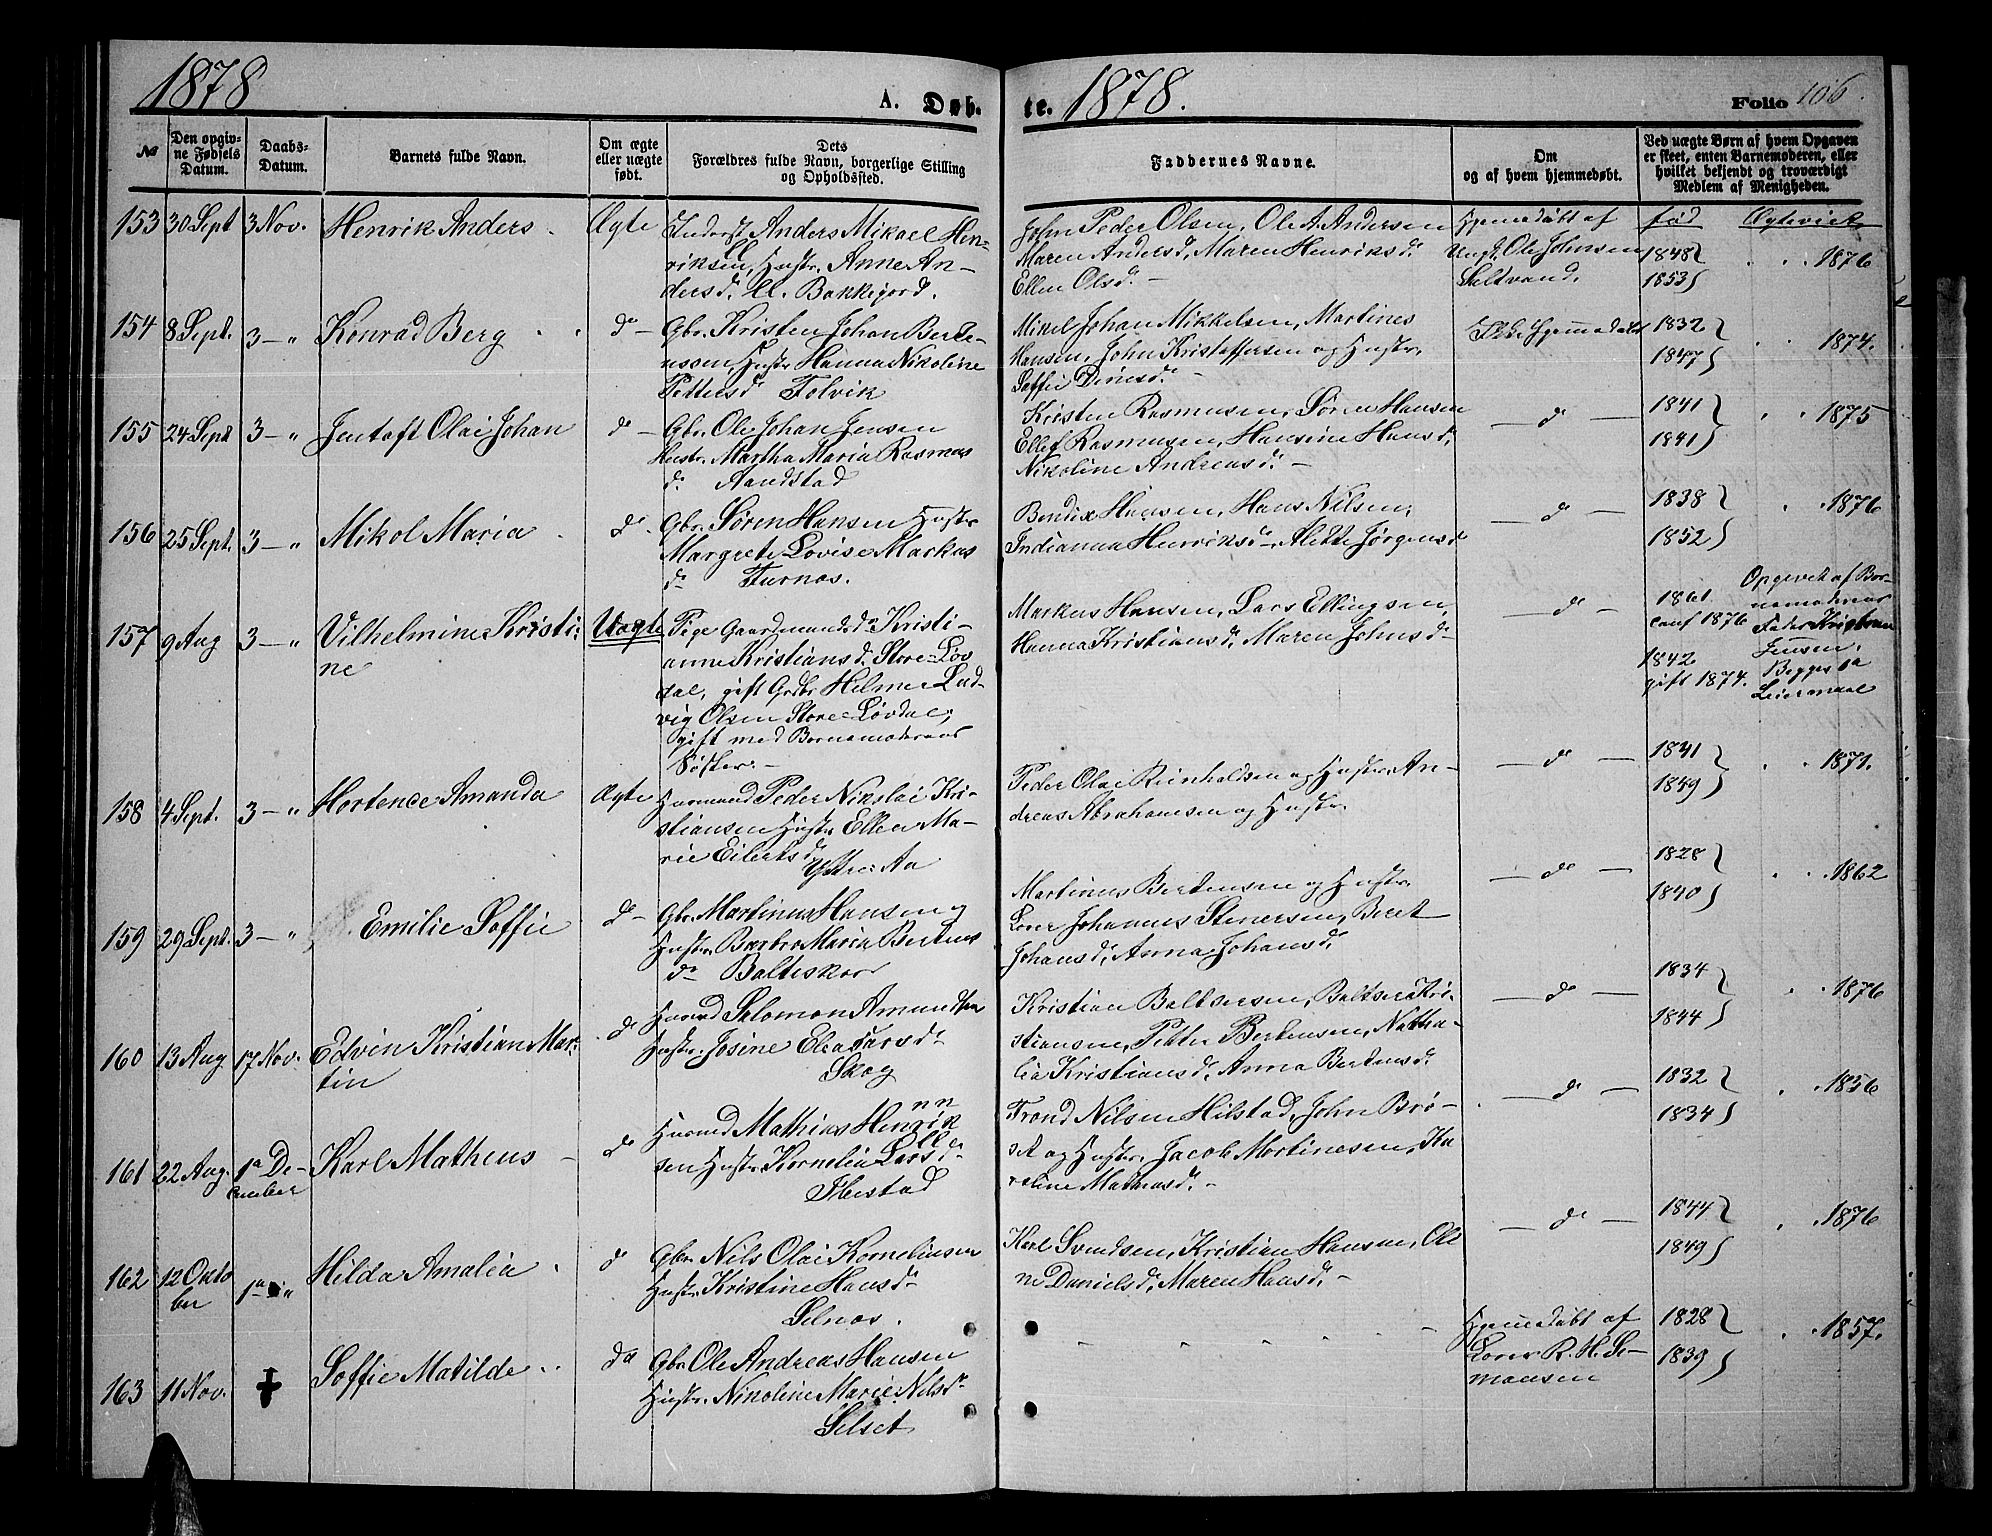 1878
A. Døb-
te. 1878.
Folio 106.
No
Den opgiv-
ne Fødsels
Datum.
Daabs-
Datum.
Barnets fulde Navn.
Om ægte
eller uægte
født.
Dets
Forældres fulde Navn, borgerlige Stilling
og Opholdssted.
Faddernes Navne.
Om
og af hvem hjemmedøbt.
Ved uægte Børn af hvem Opgaven
er skeet, enten Barnemoderen, eller
hvilket bekjendt og troværdigt
Medlem af Menigheden.
153 30 Sept 3 Nov. Henrik Anders Ægte
Anders Mikael Hen-
riksen, Hustr. Anne An-
dersd. Bakkejord.
John Peder Olsen, Ole A. Andersen
Maren Andersd. Maren Henriksd.
Ellen Olsd. -
Hjemedøbt af
Ungk. Ole Johnsen
Seltvand.
fød Ægteviet
1848 1876
1853
154 8 Sept. 3 - " Konrad Berg d -
Gbr. Kristen Johan Berte-
ussen, Hustr Hanna Nikoline
Pettersd Tolvik
Mikel Johan Mikkelsen, Martines
Hansen, John Kristoffersen og Hustr.
Soffie Dinesd. -
Ikke Hjemedøbt
1832 1874.
1847
155 24 Sept 3 - " Jentoft Olai Johan d -
Gbr. Ole Johan Jensen
Hustr. Martha Maria Rasmus
d. Aandstad
Kristen Rasmusen, Søren Hansen
Ellef Rasmusen, Hansine Hansd.
Nikoline Andreasd. -
- d -
1841 1875
1841
156 25 Sept. 3 - " Mikol Maria d -
Gbr. Søren Hansen Hustr
Margrete Lovise Markus
d Furnæs.
Bendix Hansen, Hans Nilsen,
Indianna Henriksd. Alette Jørgensd
- d -
1838 1876
1852
157 9 Aug 3 - " Vilhelmine Kristi-
ne
Uægte
Pige Gaardmandsd. Kristi-
anne Kristiansd. Store-Løv
dal, gift Grdbr Hilmer Lud-
vig Olsen Store Løvdal,
gift med Barnemoderens
Søster. -
Markus Hansen, Lars Ellingsen
Hanna Kristiansd. Maren Johnsd -
- d -
1861
conf 1876
1842
gift 1874.
Opgivet af Bar-
nemoderens
Fader Kristian
Jensen.
Begges 1a
Leiermaal
158 4 Sept. 3 - " Hortence Amanda Ægte
Huusmand Peder Nikolai Kri-
stiansen Hustr Ellen Ma-
rie Eilertsd.
Ytre Aa
Peder Olai Reinholdsen og Hustr. An-
dreas Abrahamsen og Hustr.
- d -
1841 1871.
1849
159 29 Sept. 3 - " Emilie Soffie d -
Gbr. Martinus Hansen og
Hustr. Barbro Maria Bertens
d. Balteskar
Martinus Bertensen og Hustr.
Johannes Stenersen, Beret
Johansd, Anna Johansd.
- d -
1828 1862
1840
160 13 Aug 17 Nov. Edvin Kristian Mar-
tin
d
Huusmd Salomon Amundsen
Hustr. Josine Eleasarsd.
Skog
Kristian Baltsersen, Baltser Kri-
stiansen, Petter Bertensen, Natha-
lia Kristiansd, Anna Bertensd.
- d -
1834 1876
1844
161 22 Aug. 1a De-
cember
Karl Matheus - d
Huusmd Mathias Henrik
sen Hustr. Kornelia Larsd.
Ibestad
Trond Nilsen Hilstad, John Brø-
set og Hustr. Jacob Martinesen, Ka
roline Mathiasd. -
- d -
1832 1856
1834
162 12 Okto
ber
1a "
Hilda Amalia d
Gbr. Nils Olai Korneliusen
Hustr. Kristine Hansd.
Selnæs.
Karl Svendsen, Kristian Hansen, Ole
ne Danielsd, Maren Hansd. -
- d -
1844 1876
1849
163 11 Nov. Soffie Matilde d
Gbr. Ole Andreas Hansen
Hustr. Nikoline Marie Nilsd.
Selset
Hjemedøbt af
Lærer R. H. Si-
monsen
1828 1857.
1839